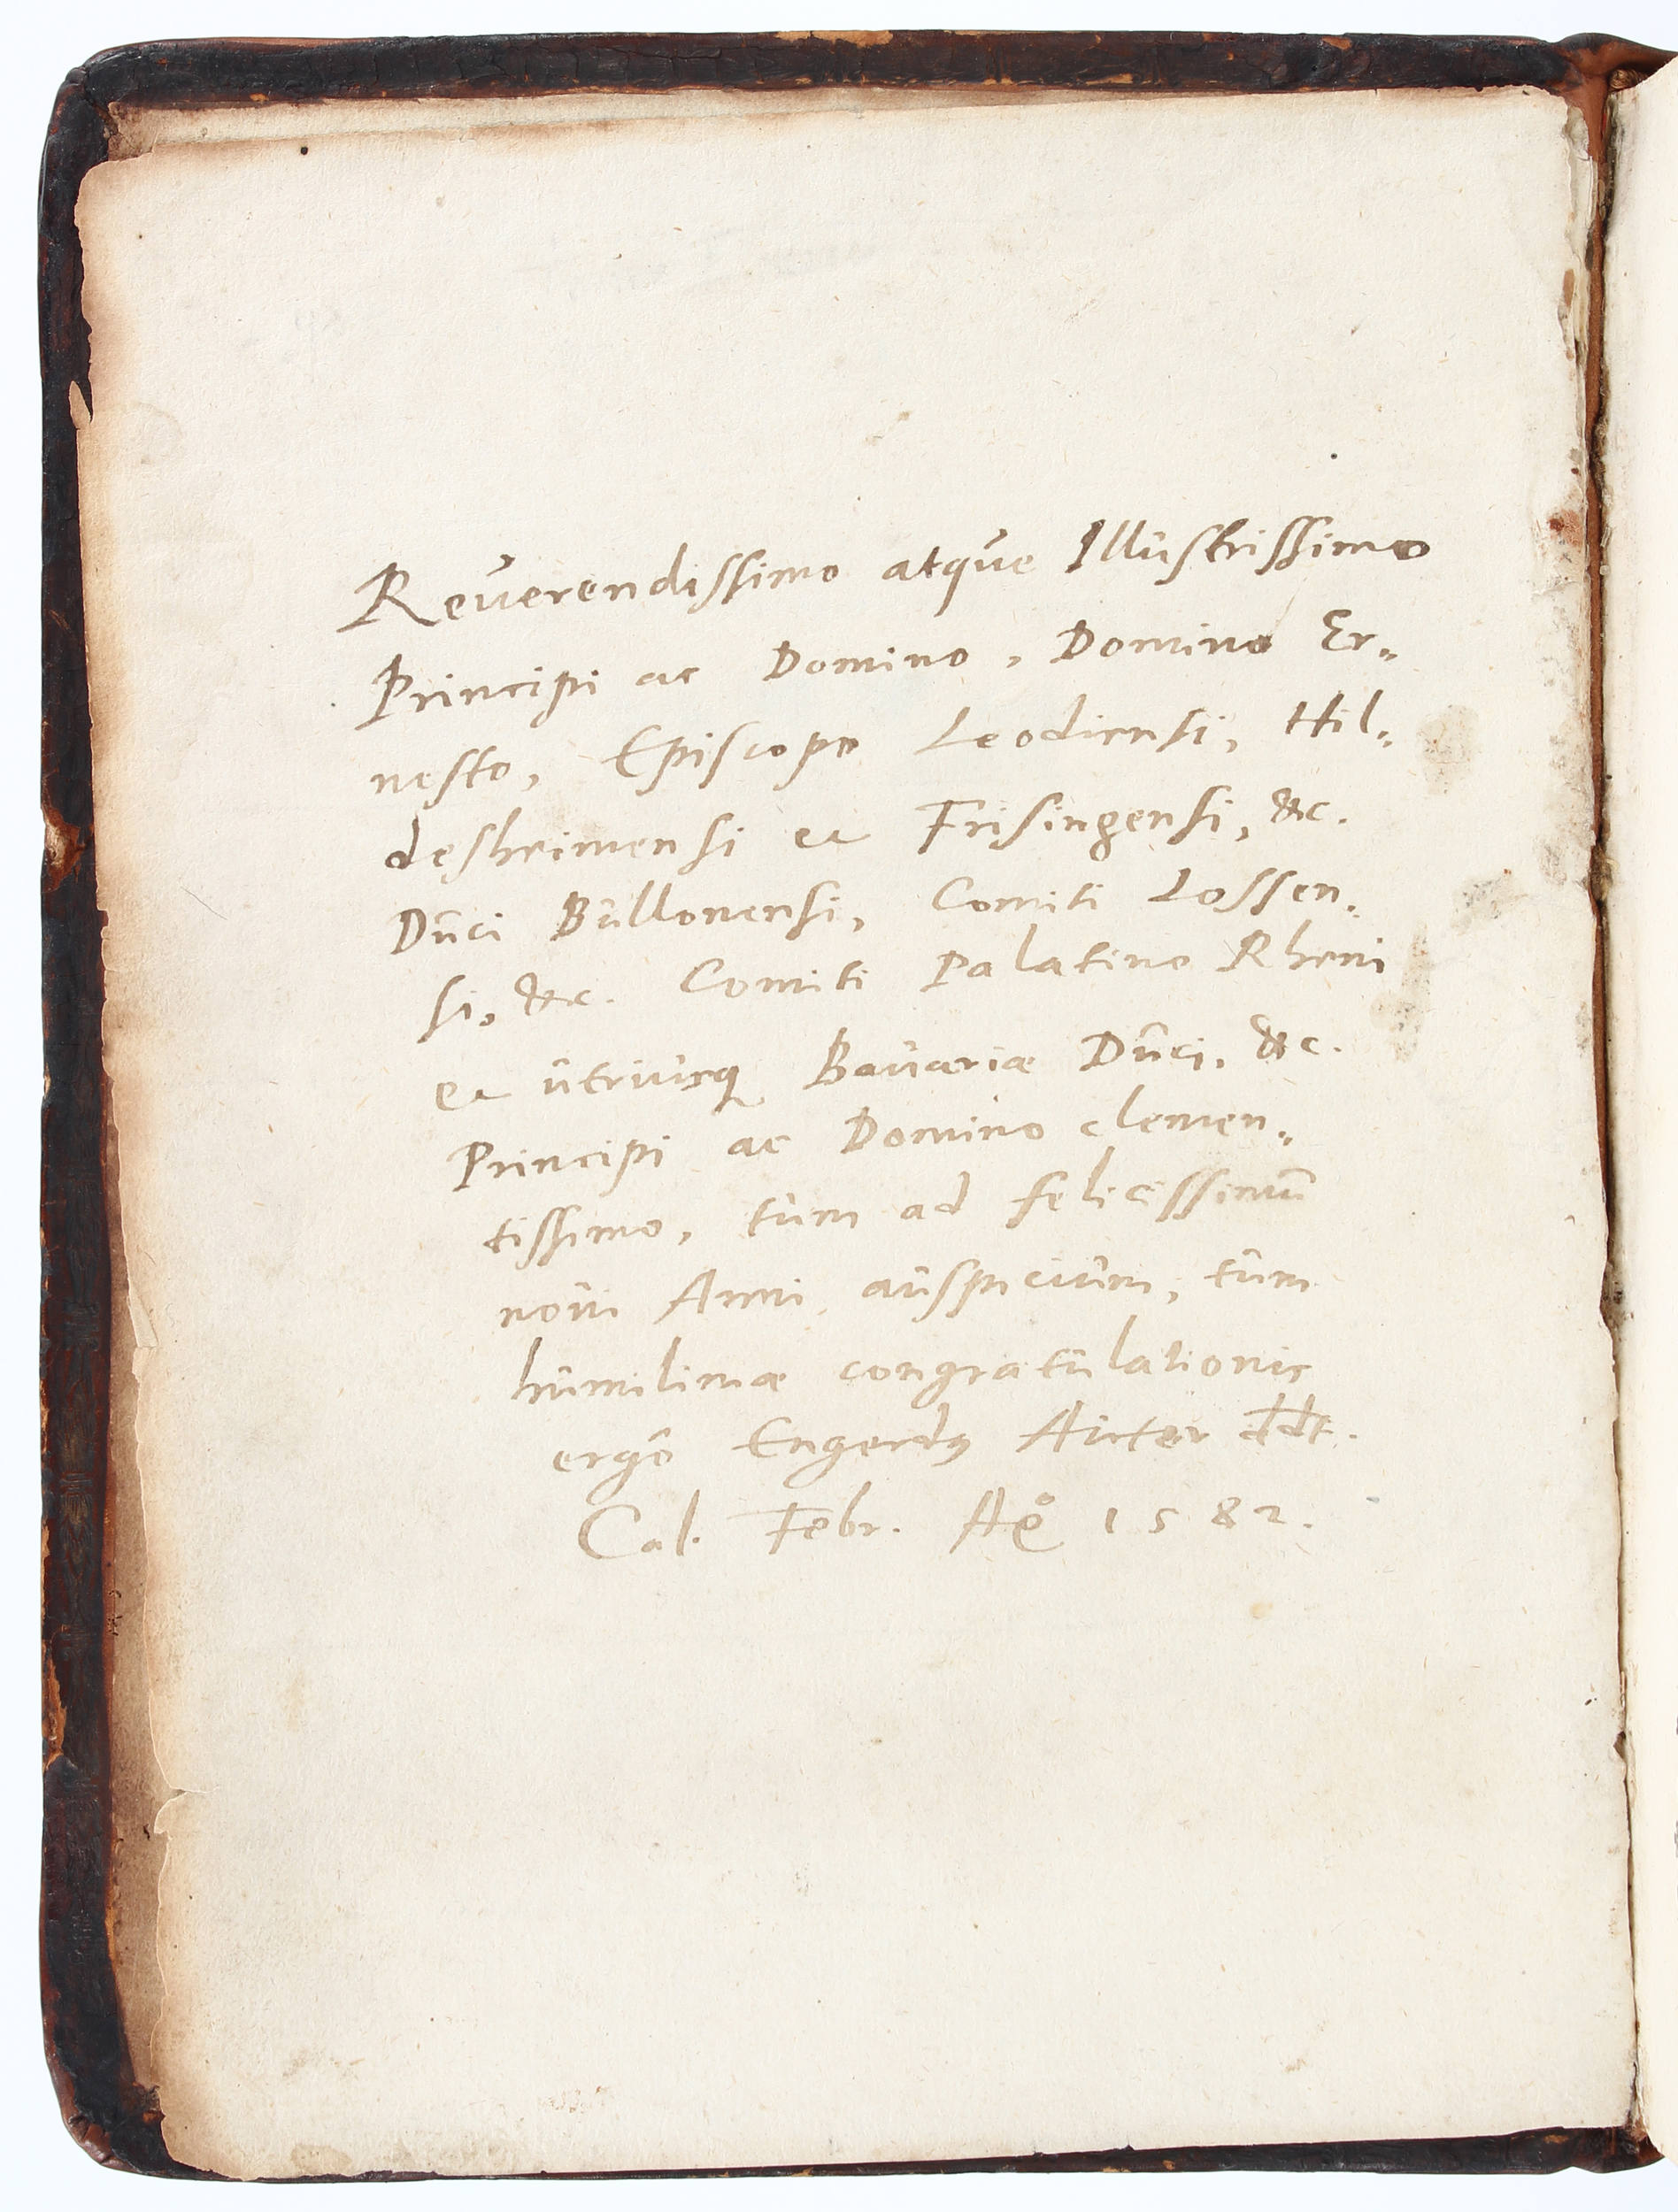 Reuerendissimo atque Illustrissimo
Principi ac Domino, Domino Er„
nesto, Episcopo Leodiensi, Hil„
desheimensi et Frisingensi, &c.
Duci Bullonensi, Comiti Lossen„
si, &c. Comiti Palatino Rheni
et utriusq Bauariæ Duci, &c.
Principi ac Domino clemen„
tissimo, tum ad felicissimū
noui Anni auspicium, tum
humilimæ congratulationis
ergô Engerdꝰ Auctor ddt.
Cal. Febr. Aº 1582.